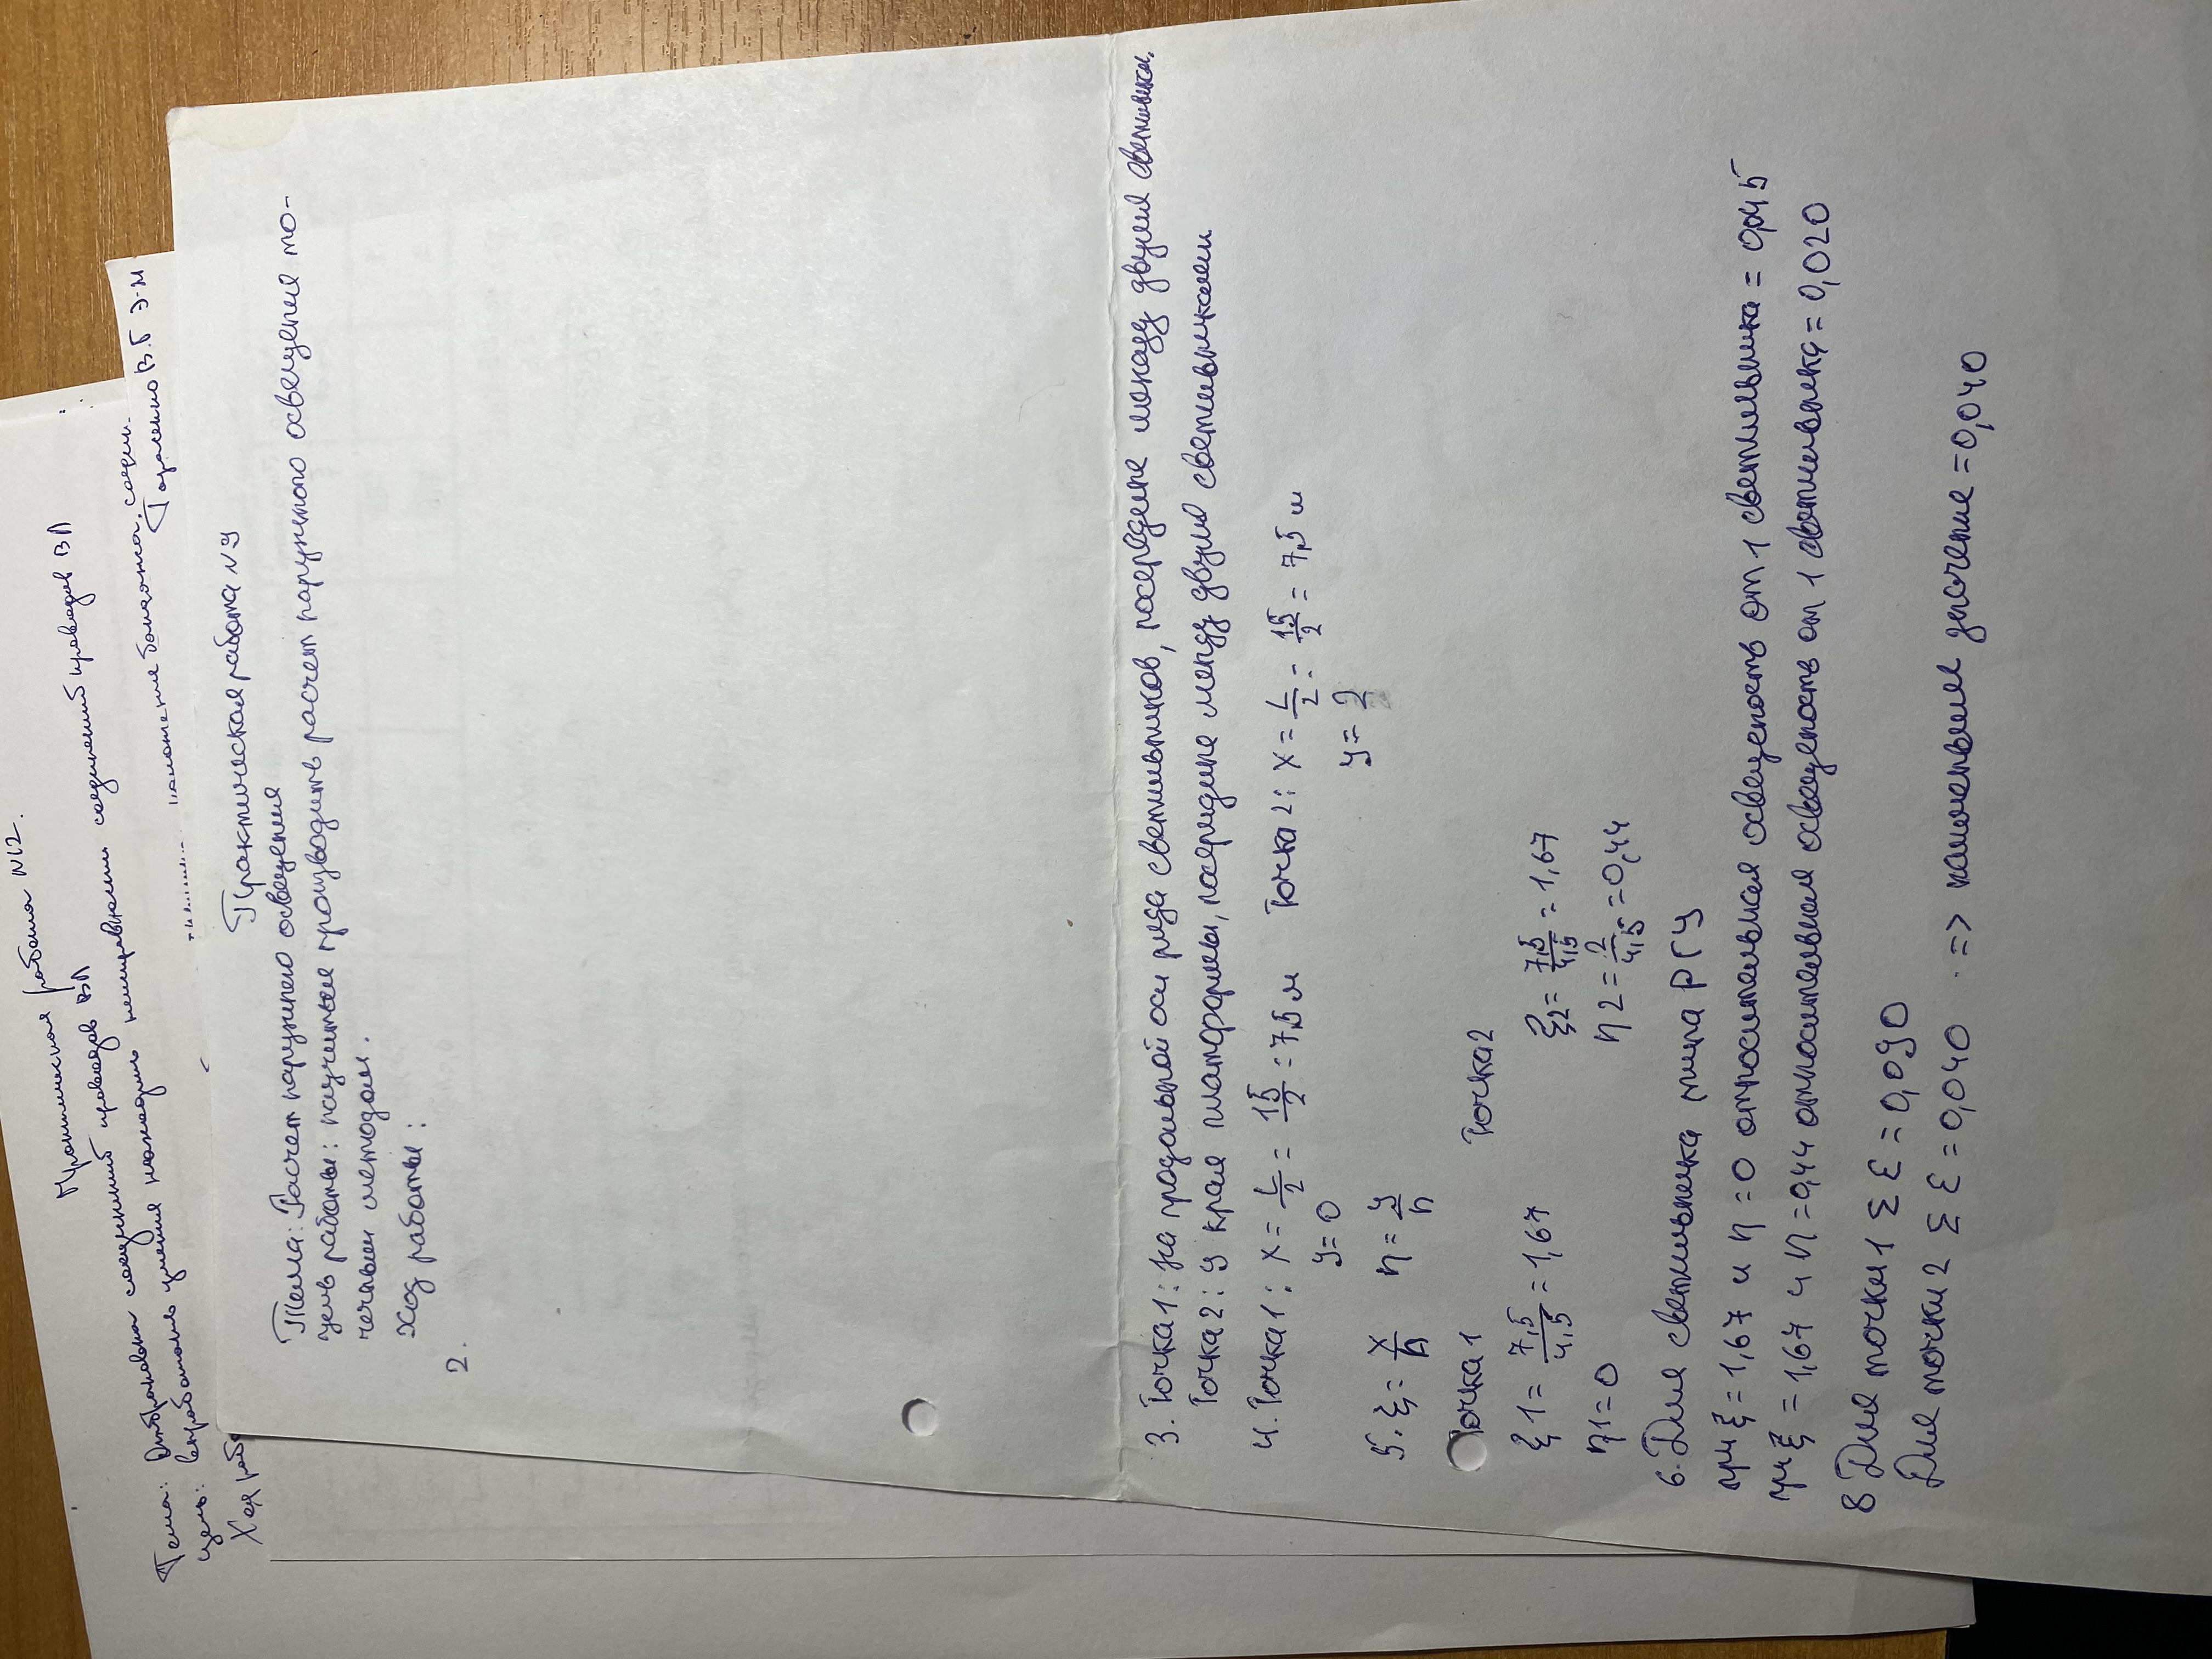 Практическая работа N12.
Тема: соединений проводов ВЛ
цель: выработать умение соединений проводов ВЛ
Ход раб
Тарасенко В.Б Э-11
Практическая работа N9
Тема: Расчет наружнего освещения
цель работы: научиться производить расчет наружного освещения то-
чечным методом.
Ход работы:
2.
3. Точка 1: на продольной оси ряда светильников, посередине между двумя светильник.
Точка 2: у края платформы, посередине между двумя светильниками
4. Точка 1: x = L/2 = 15/2 = 7,5 м Точка 2: x = L/2 = 15/2 = 7,5 м
y = 0 y = 2
5. ξ = x/h η = y/h
Точка 1 Точка 2
ξ1 = 7,5/4,5 = 1,67 ξ2 = 7,5/4,5 = 1,67
η1 = 0 η2 = 2/4,5 = 0,44
6. Для светильника типа РГУ
при ξ = 1,67 и η = 0 относительная освещеность от 1 светильника = 0,045
при ξ = 1,67 и η = 0,44 относительная освещеность от 1 светильника = 0,020
8 Для точки 1 Σ ε = 0,090
Для точки 2 Σ ε = 0,040 => наименьшее значение = 0,040